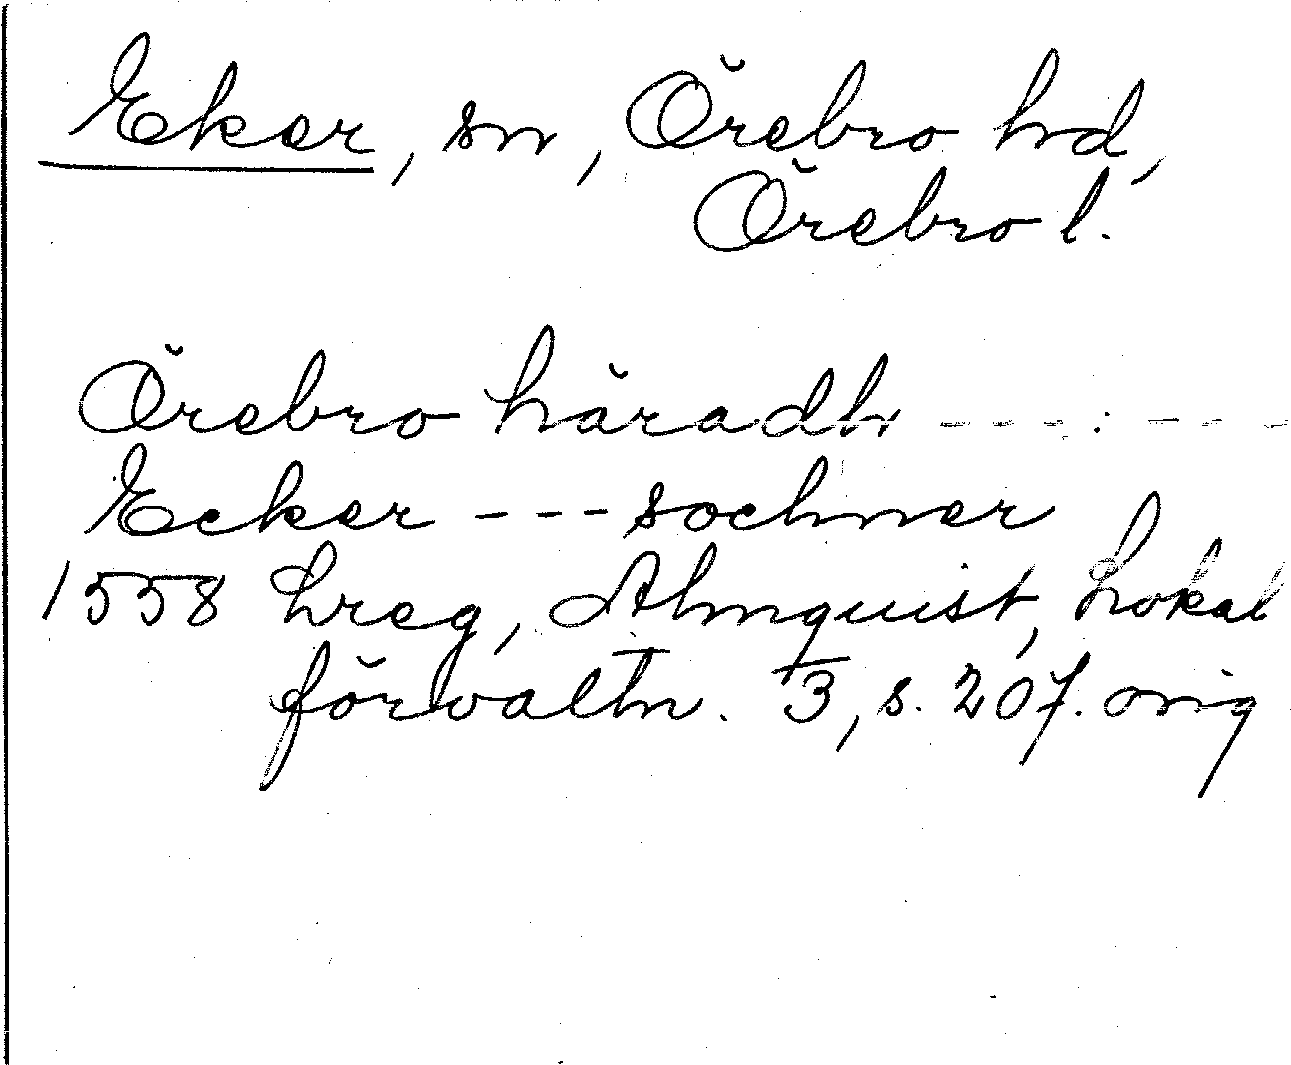 Eker, sn, Örebro hd,
Örebro l.
Örebro häradh - - - : - - -
Ecker - - - sochner
1558 Lreg, Almquist, Lokal
förvaltn. 3, s. 207. orig